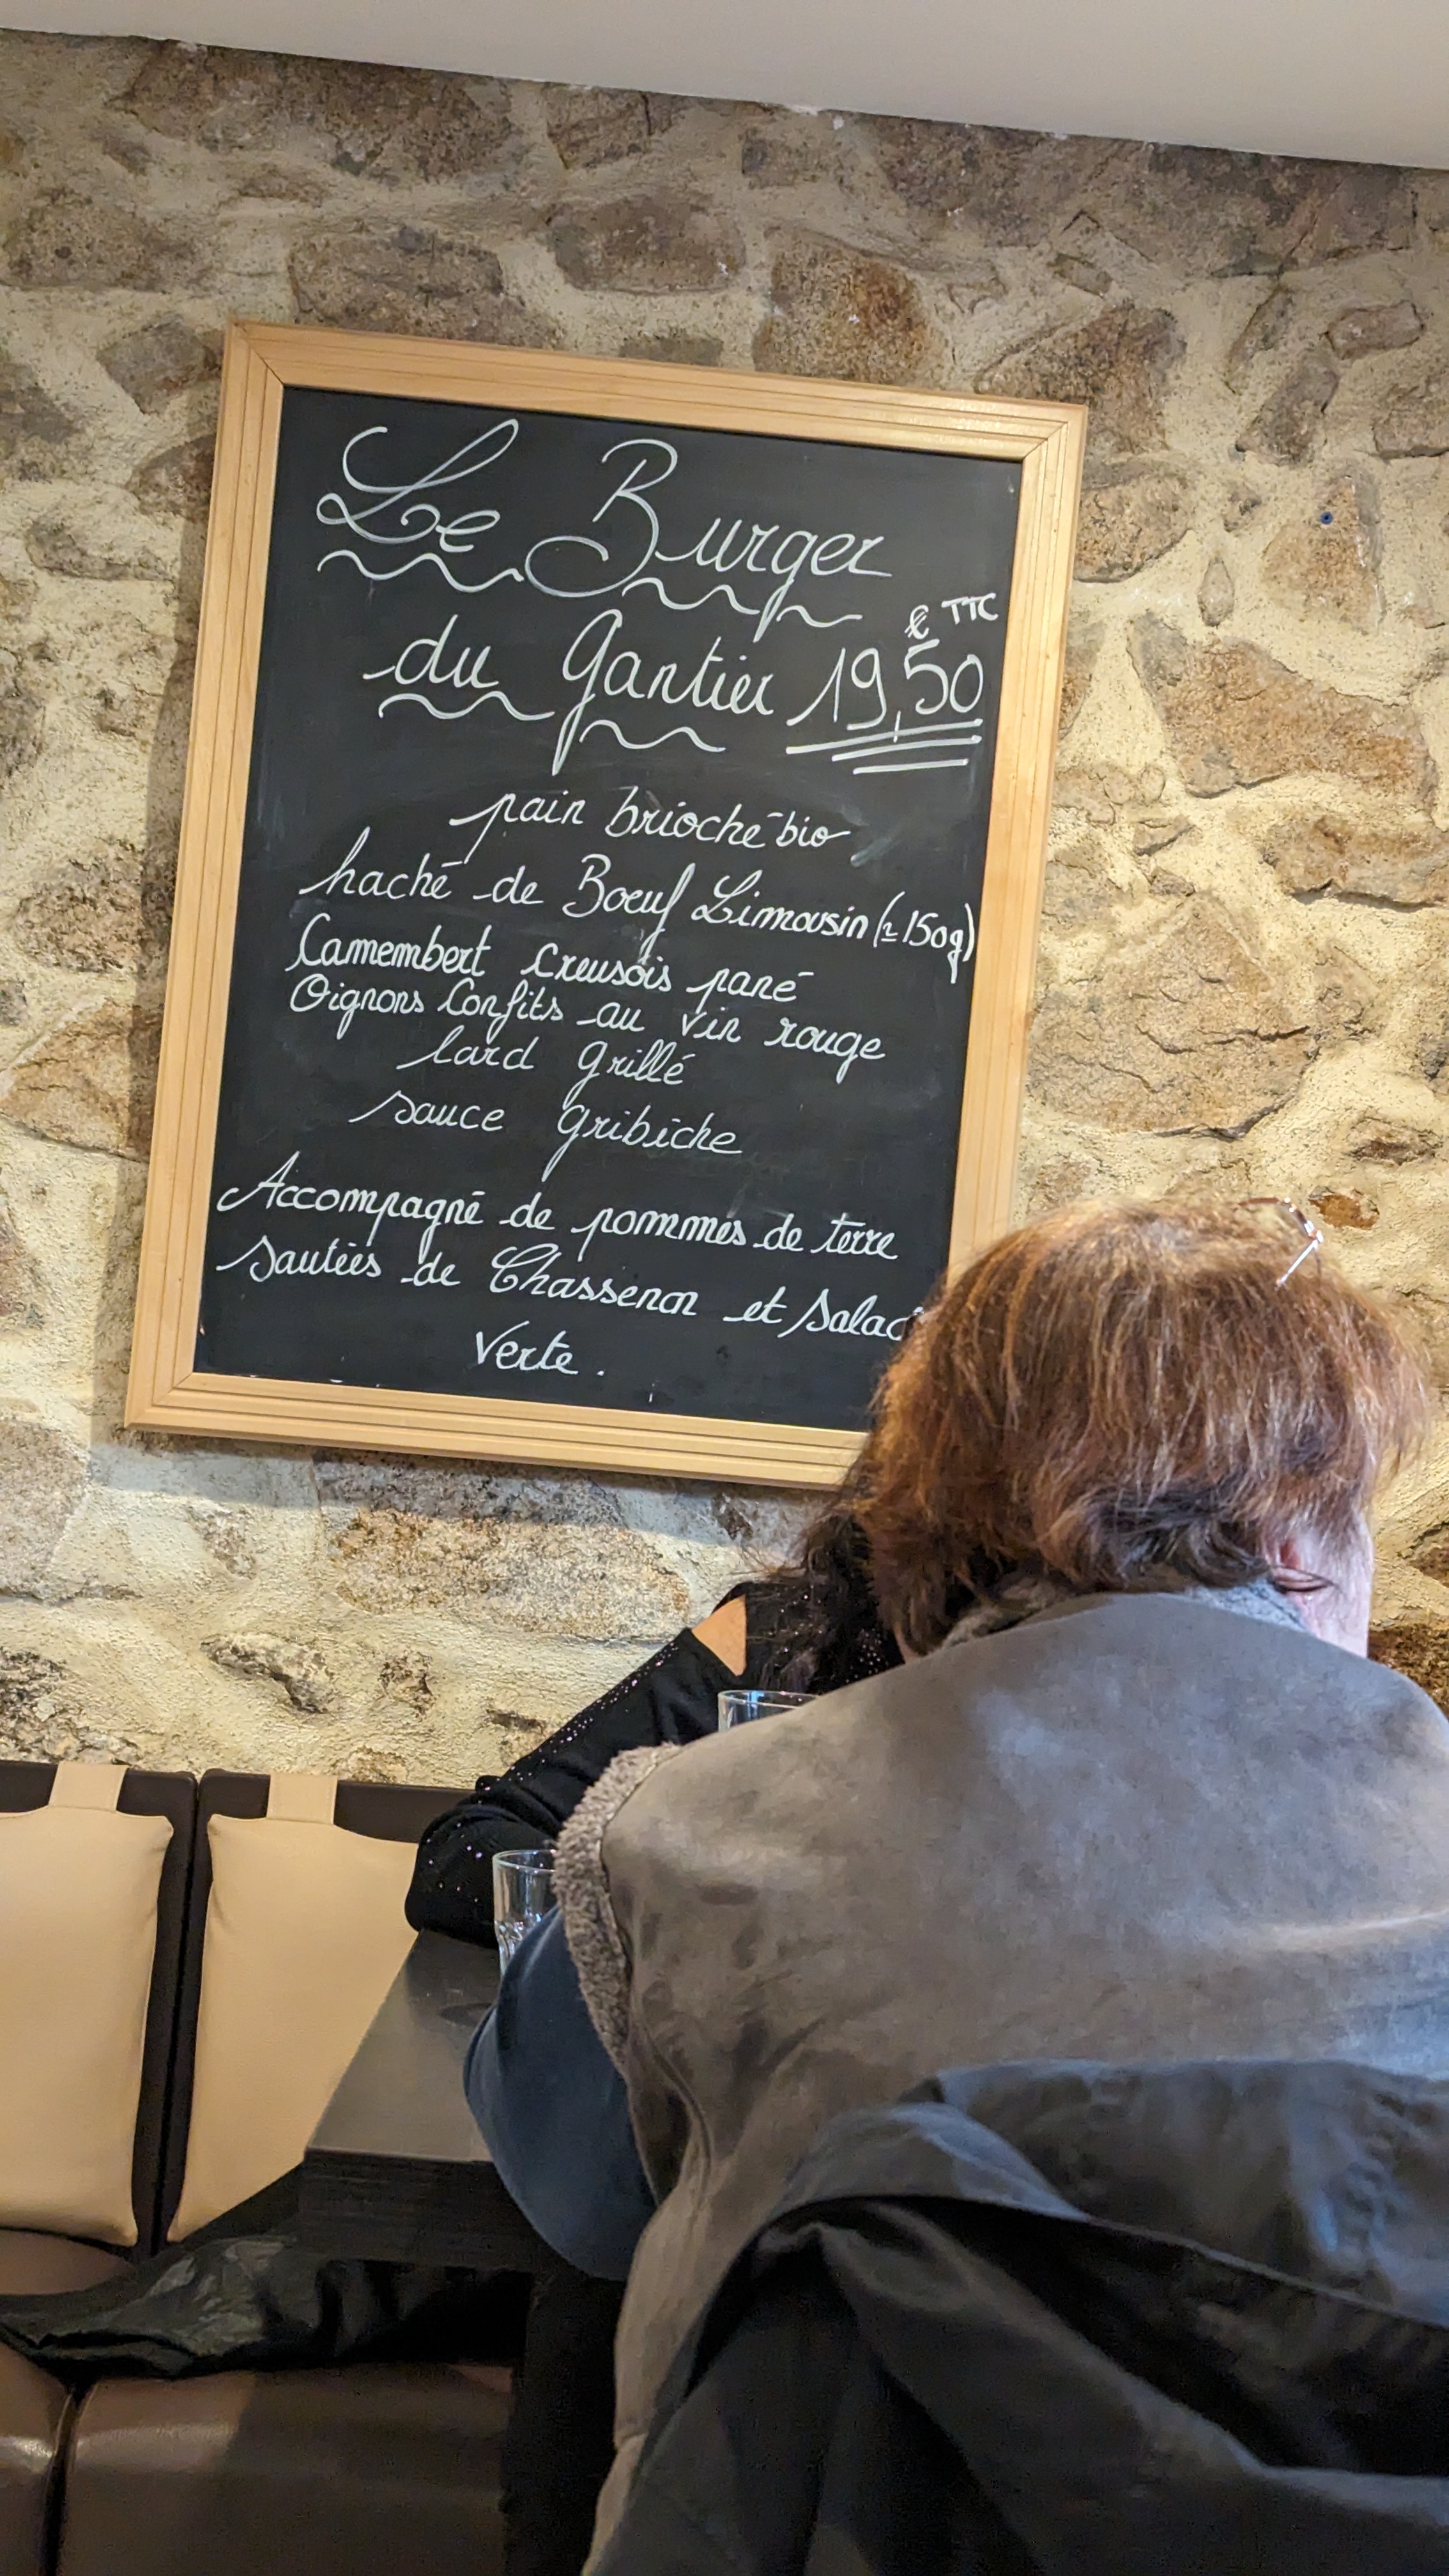 Le Burger
du Gantier 19,50 € TTC
pain brioché bio
haché de Boeuf Limousin (≃ 150g)
Camembert Creusois pané
Oignons Confits au vin rouge
lard Grillé
sauce Gribiche
Accompagné de pommes de terre
Sautées de Chassenon et Salad
Verte.